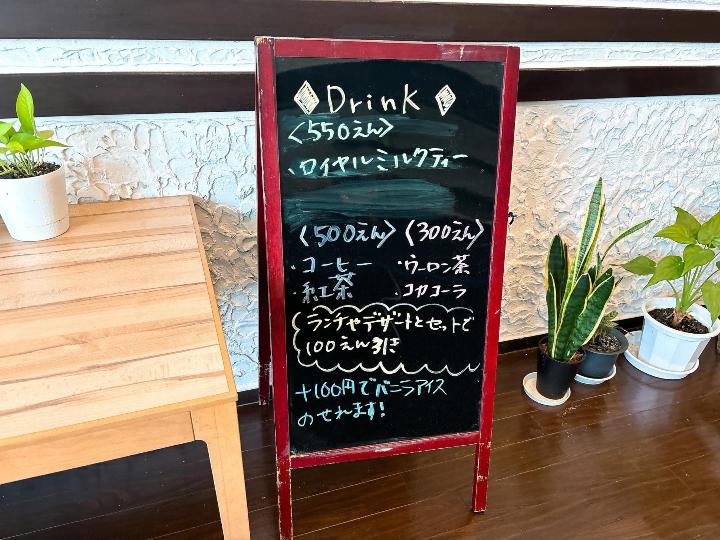 ◇Drink◇
〈550えん〉
・ロイヤルミルクティー
〈500えん〉 〈300えん〉
・コーヒー ・ウーロン茶
・紅茶 ・コカコーラ
ランチやデザートとセットで
100えん引き
+100円でバニラアイス
のせれます!